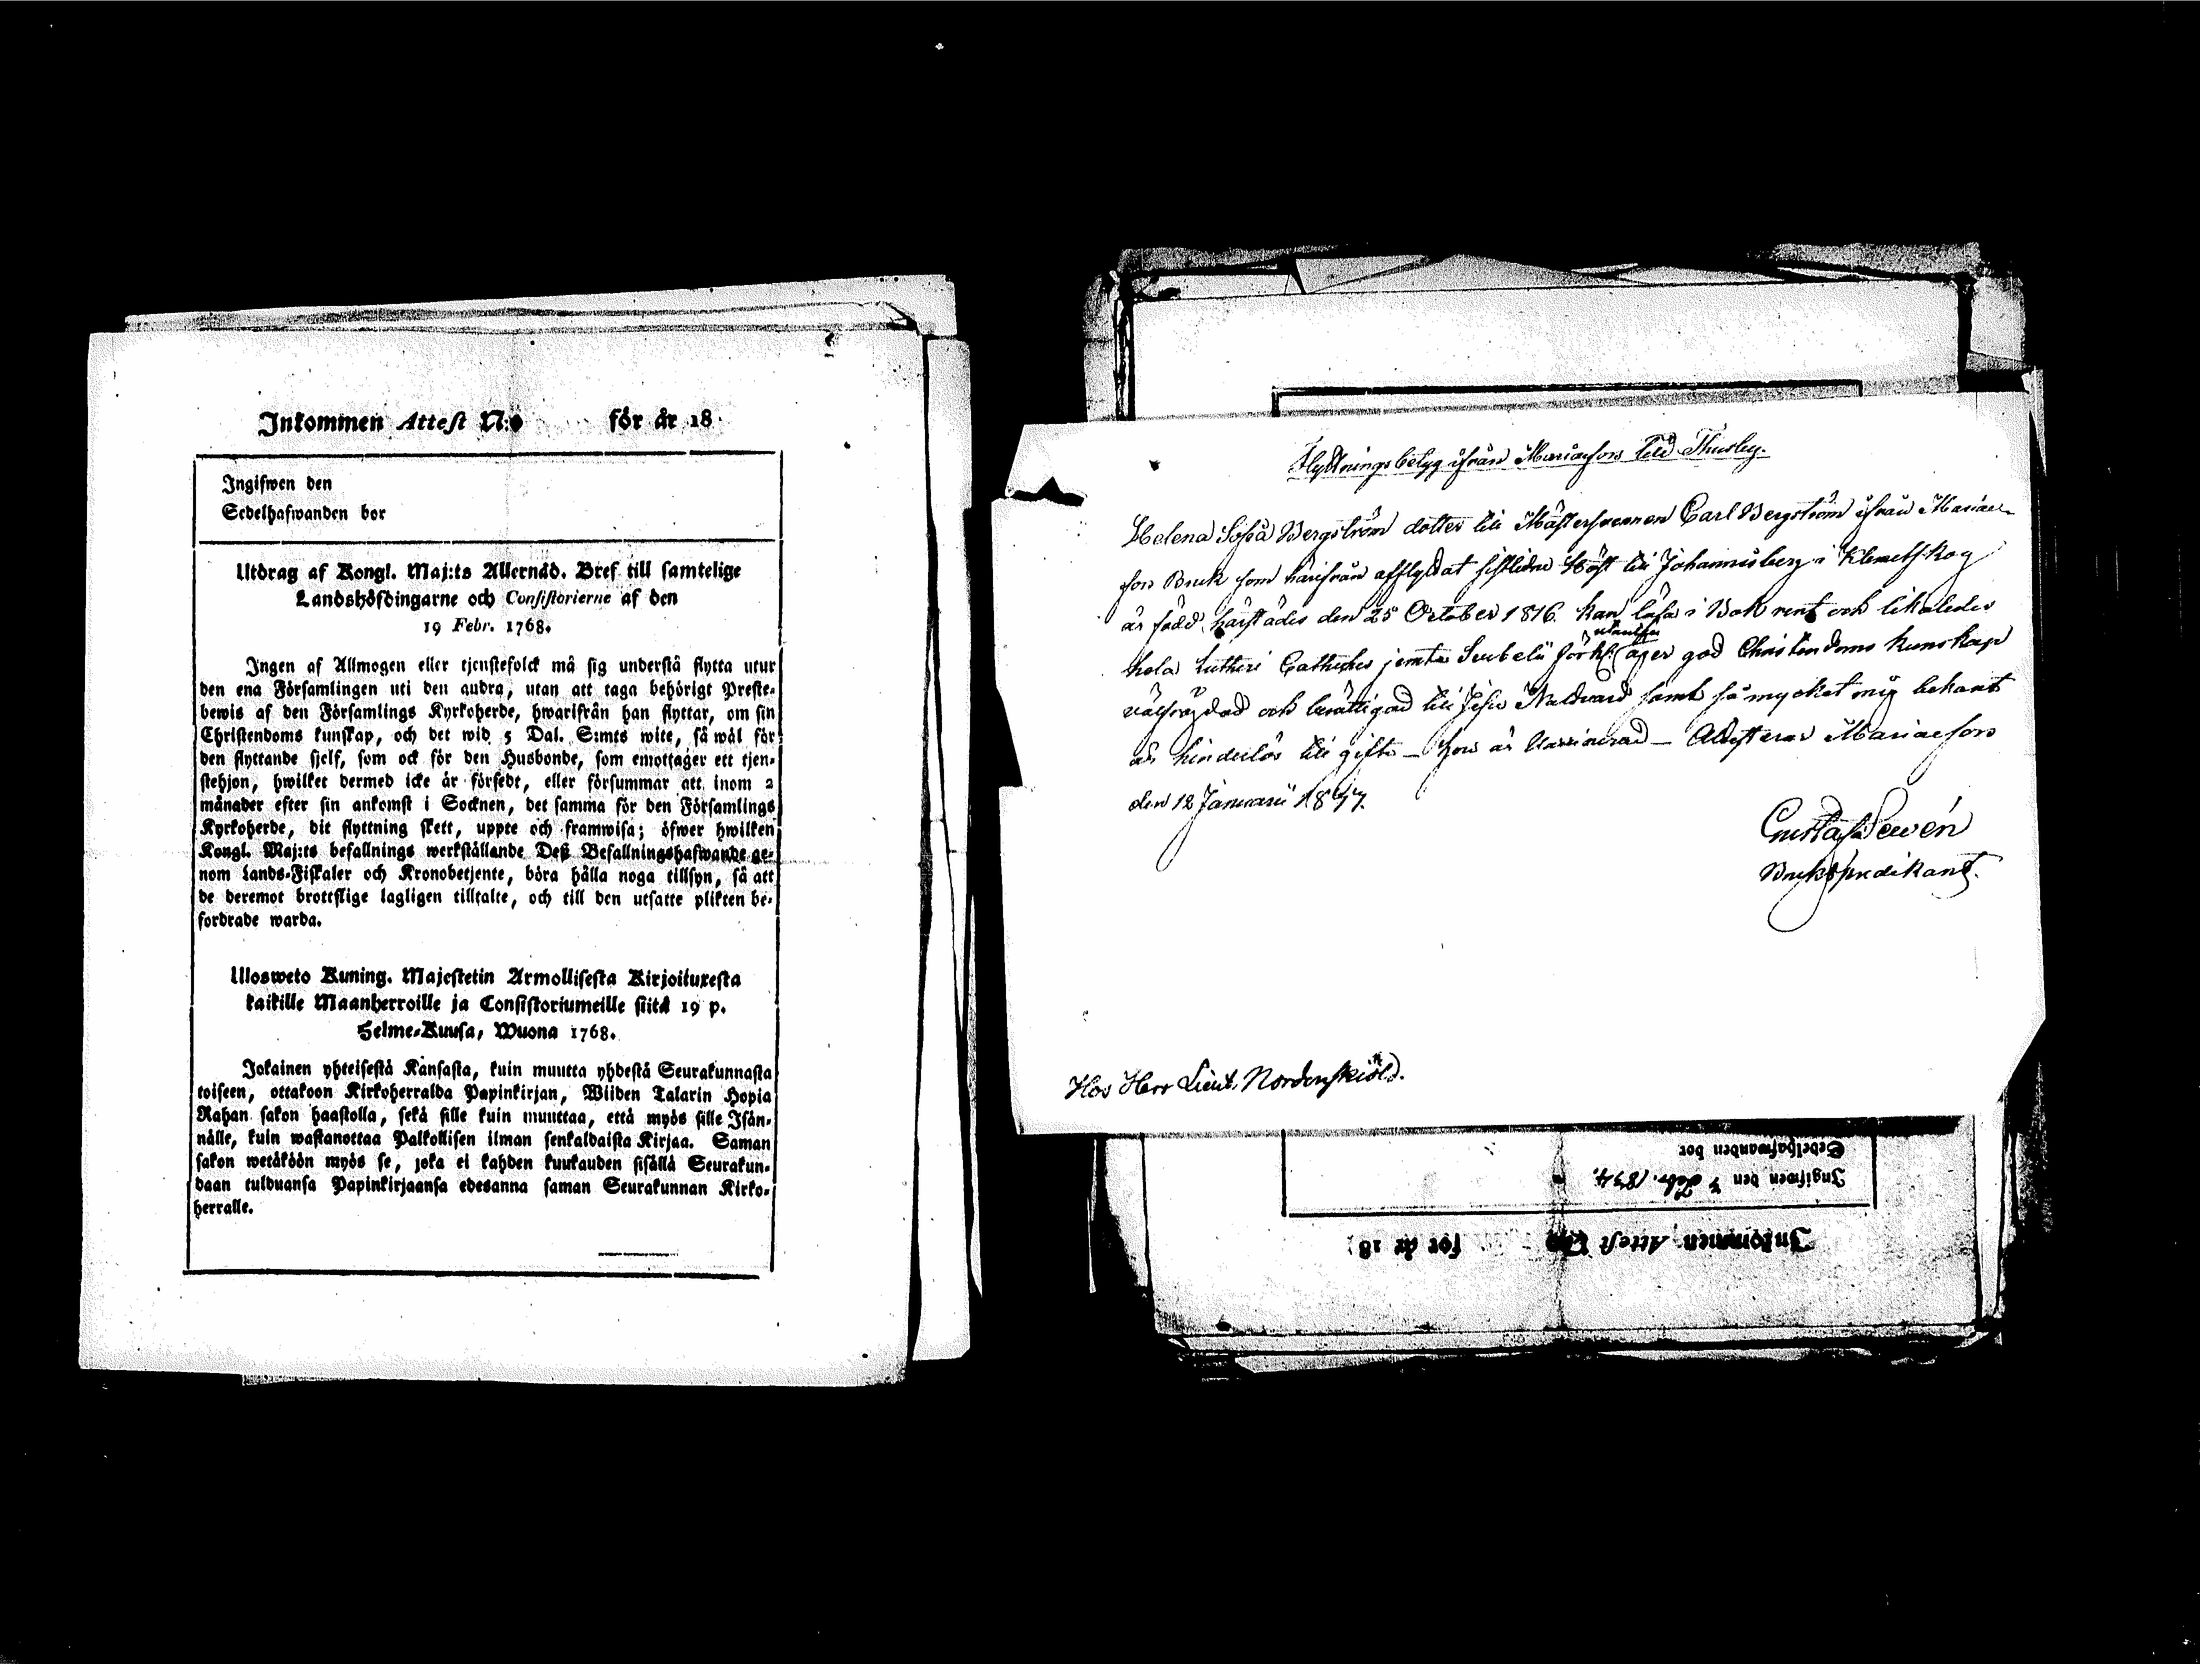 Inkommen Attest N:o för år 18
Ingifwen den
Sedelhafwanden bor
Utdrag af Kongl. Maj:ts Allernåd. Bref till samtelige
Landshöfdingarne och Consistorierne af den
19 Febr. 1768.
Ingen af Allmogen eller tjenstefolck må sig understå flytta utur
den ena Församlingen uti den audra, utan att taga behörigt Preste-
bewis af den Församlings Kyrkoherde, hwarifrån han flyttar, om sin
Christendoms kunskap, och det wid 5 Dal. S:mts wite, så wäl för
den flyttande sjelf, som ock för den Husbonde, som emottager ett tjen-
stehjon, hwilket dermed icke är försedt, eller försummar att inom 2
månader efter sin ankomst i Socknen, det samma för den Församlings
Kyrkoherde, dit flyttning skett, uppte och framwisa; öfwer hwilken
Kongl. Maj:ts befallnings werkställande Deß Befallningshafwande ge-
nom Lands-Fiskaler och Kronobetjente, böra hålla noga tillsyn, så att
de deremot brottslige lagligen tilltalte, och till den utsatte plikten be-
fordrade warda.
Ulosweto Kuning. Majestetin Armollisesta Kirjoituxesta
kaikille Maanherroille ja Consistoriumeille siitä 19 p.
Helme-Kuusa, Wuona 1768.
Jokainen yhteisestä Kansasta, kuin muutta yhdestä Seurakunnasta
toiseen, ottakoon Kirkoherralda Papinkirjan, Wiiden Talarin Hopia
Rahan sakon haastolla, sekä sille kuin muuttaa, että myös sille Isän-
nälle, kuin wastanottaa Palkollisen ilman senkaldaista Kirjaa. Saman
sakon wetäköön myös se, joka ei kahden kuukauden sisällä Seurakun-
daan tulduansa Papinkirjaansa edesanna saman Seurakunnan Kirko-
herralle.
Flyttningsbetyg ifrån Mariaefors till Thusby.
Helena Sofia Bergström dotter till Mästersvennen Carl Bergström ifrån Mariae-
fors Bruk som härifrån afflyttat sistlidne Höst till Johannisberg i Klemetskog
är född härstädes den 25 October 1816. kan läsa i Bok rent och likaledes
hela Lutheri Catheches jemte Svebelii Förkl. äger god Christendoms kunskap
välfrejdad och berättigad till Jesu Nattvard samt så mycket mig bekant
är hinderlös till gifte – hon är Vaccinerad – Attesterar Mariaefors
den 12 Januarii
Gustaf
Brukspredikant.
Hos Herr Lieut. Nordenskiöld.
Sedelhafwanden bor
Ingifwen den 3 Febr. 1834.
Inkommen Attest N:o för år 18